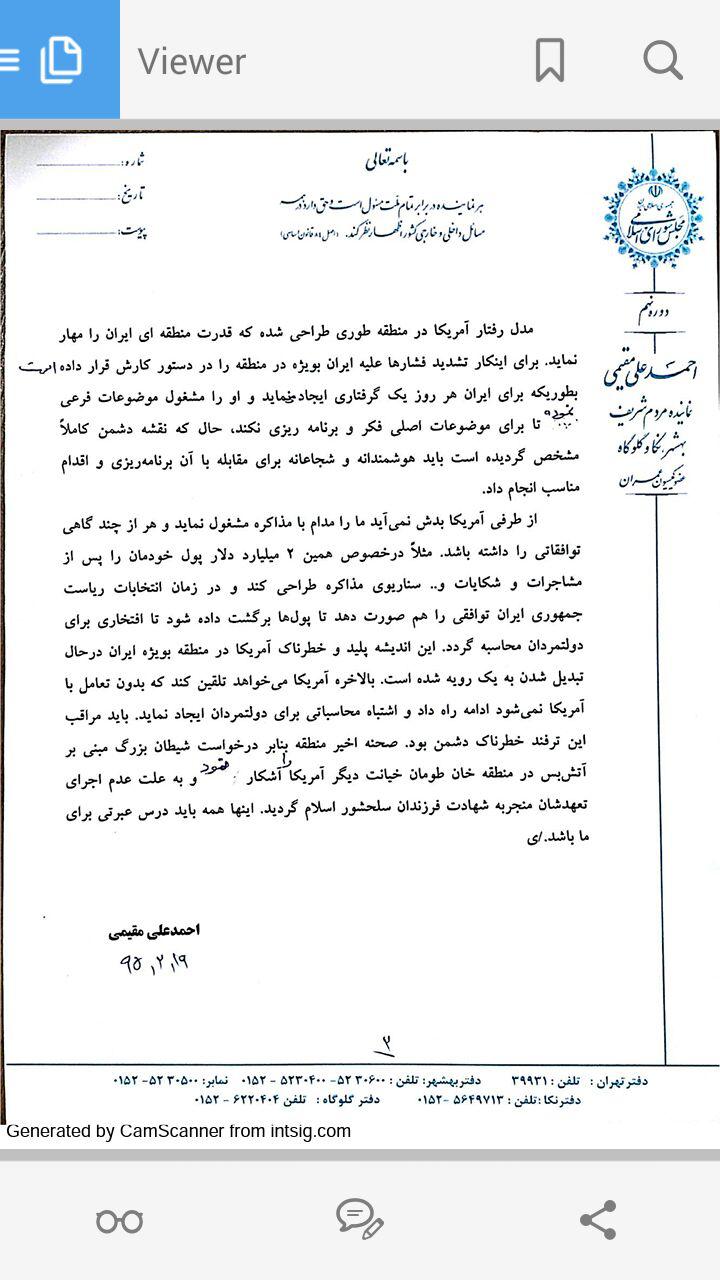 Viewer
باسمه تعالی
هر نماینده در برابر تمام ملت مسئول است و حق دارد در همه
مسائل داخلی و خارجی کشور اظهار نظر کند. (اصل ۸۴ قانون اساسی)
شماره:
تاریخ:
پیوست:
جمهوری اسلامی ایران
مجلس شورای اسلامی
دوره نهم
احمدعلی مقیمی
نماینده مردم شریف
بهشهر، نکا و گلوگاه
عضو کمیسیون عمران
مدل رفتار آمریکا در منطقه طوری طراحی شده که قدرت منطقه ای ایران را مهار
نماید. برای اینکار تشدید فشارها علیه ایران بویژه در منطقه را در دستور کارش قرار داده است
بطوریکه برای ایران هر روز یک گرفتاری ایجاد می‌نماید و او را مشغول موضوعات فرعی
تا برای موضوعات اصلی فکر و برنامه ریزی نکند، حال که نقشه دشمن کاملاً
مشخص گردیده است باید هوشمندانه و شجاعانه برای مقابله با آن برنامه‌ریزی و اقدام
مناسب انجام داد.
از طرفی آمریکا بدش نمی‌آید ما را مدام با مذاکره مشغول نماید و هر از چند گاهی
توافقاتی را داشته باشد. مثلاً درخصوص همین ۲ میلیارد دلار پول خودمان را پس از
مشاجرات و شکایات و.. سناریوی مذاکره طراحی کند و در زمان انتخابات ریاست
جمهوری ایران توافقی را هم صورت دهد تا پول‌ها برگشت داده شود تا افتخاری برای
دولتمردان محاسبه گردد. این اندیشه پلید و خطرناک آمریکا در منطقه بویژه ایران درحال
تبدیل شدن به یک رویه شده است. بالاخره آمریکا می‌خواهد تلقین کند که بدون تعامل با
آمریکا نمی‌شود ادامه راه داد و اشتباه محاسباتی برای دولتمردان ایجاد نماید. باید مراقب
این ترفند خطرناک دشمن بود. صحنه اخیر منطقه بنابر درخواست شیطان بزرگ مبنی بر
آتش‌بس در منطقه خان طومان خیانت دیگر آمریکا را آشکار نمود و به علت عدم اجرای
تعهدشان منجربه شهادت فرزندان سلحشور اسلام گردید. اینها همه باید درس عبرتی برای
ما باشد./ی
احمدعلی مقیمی
۹۵٫۲٫۱۹
۲
دفتر تهران : تلفن : ۳۹۹۳۱ دفتر بهشهر: تلفن : ۳۰۶۰۰ ۵۲- ۵۲۳۰۴۰۰ - ۰۱۵۲ نمابر: ۳۰۵۰۰ ۵۲- ۰۱۵۲
دفتر نکا : تلفن : ۵۶۴۹۷۱۳ -۰۱۵۲ دفتر گلوگاه : تلفن ۶۲۲۰۴۰۴ - ۰۱۵۲
Generated by CamScanner from intsig.com